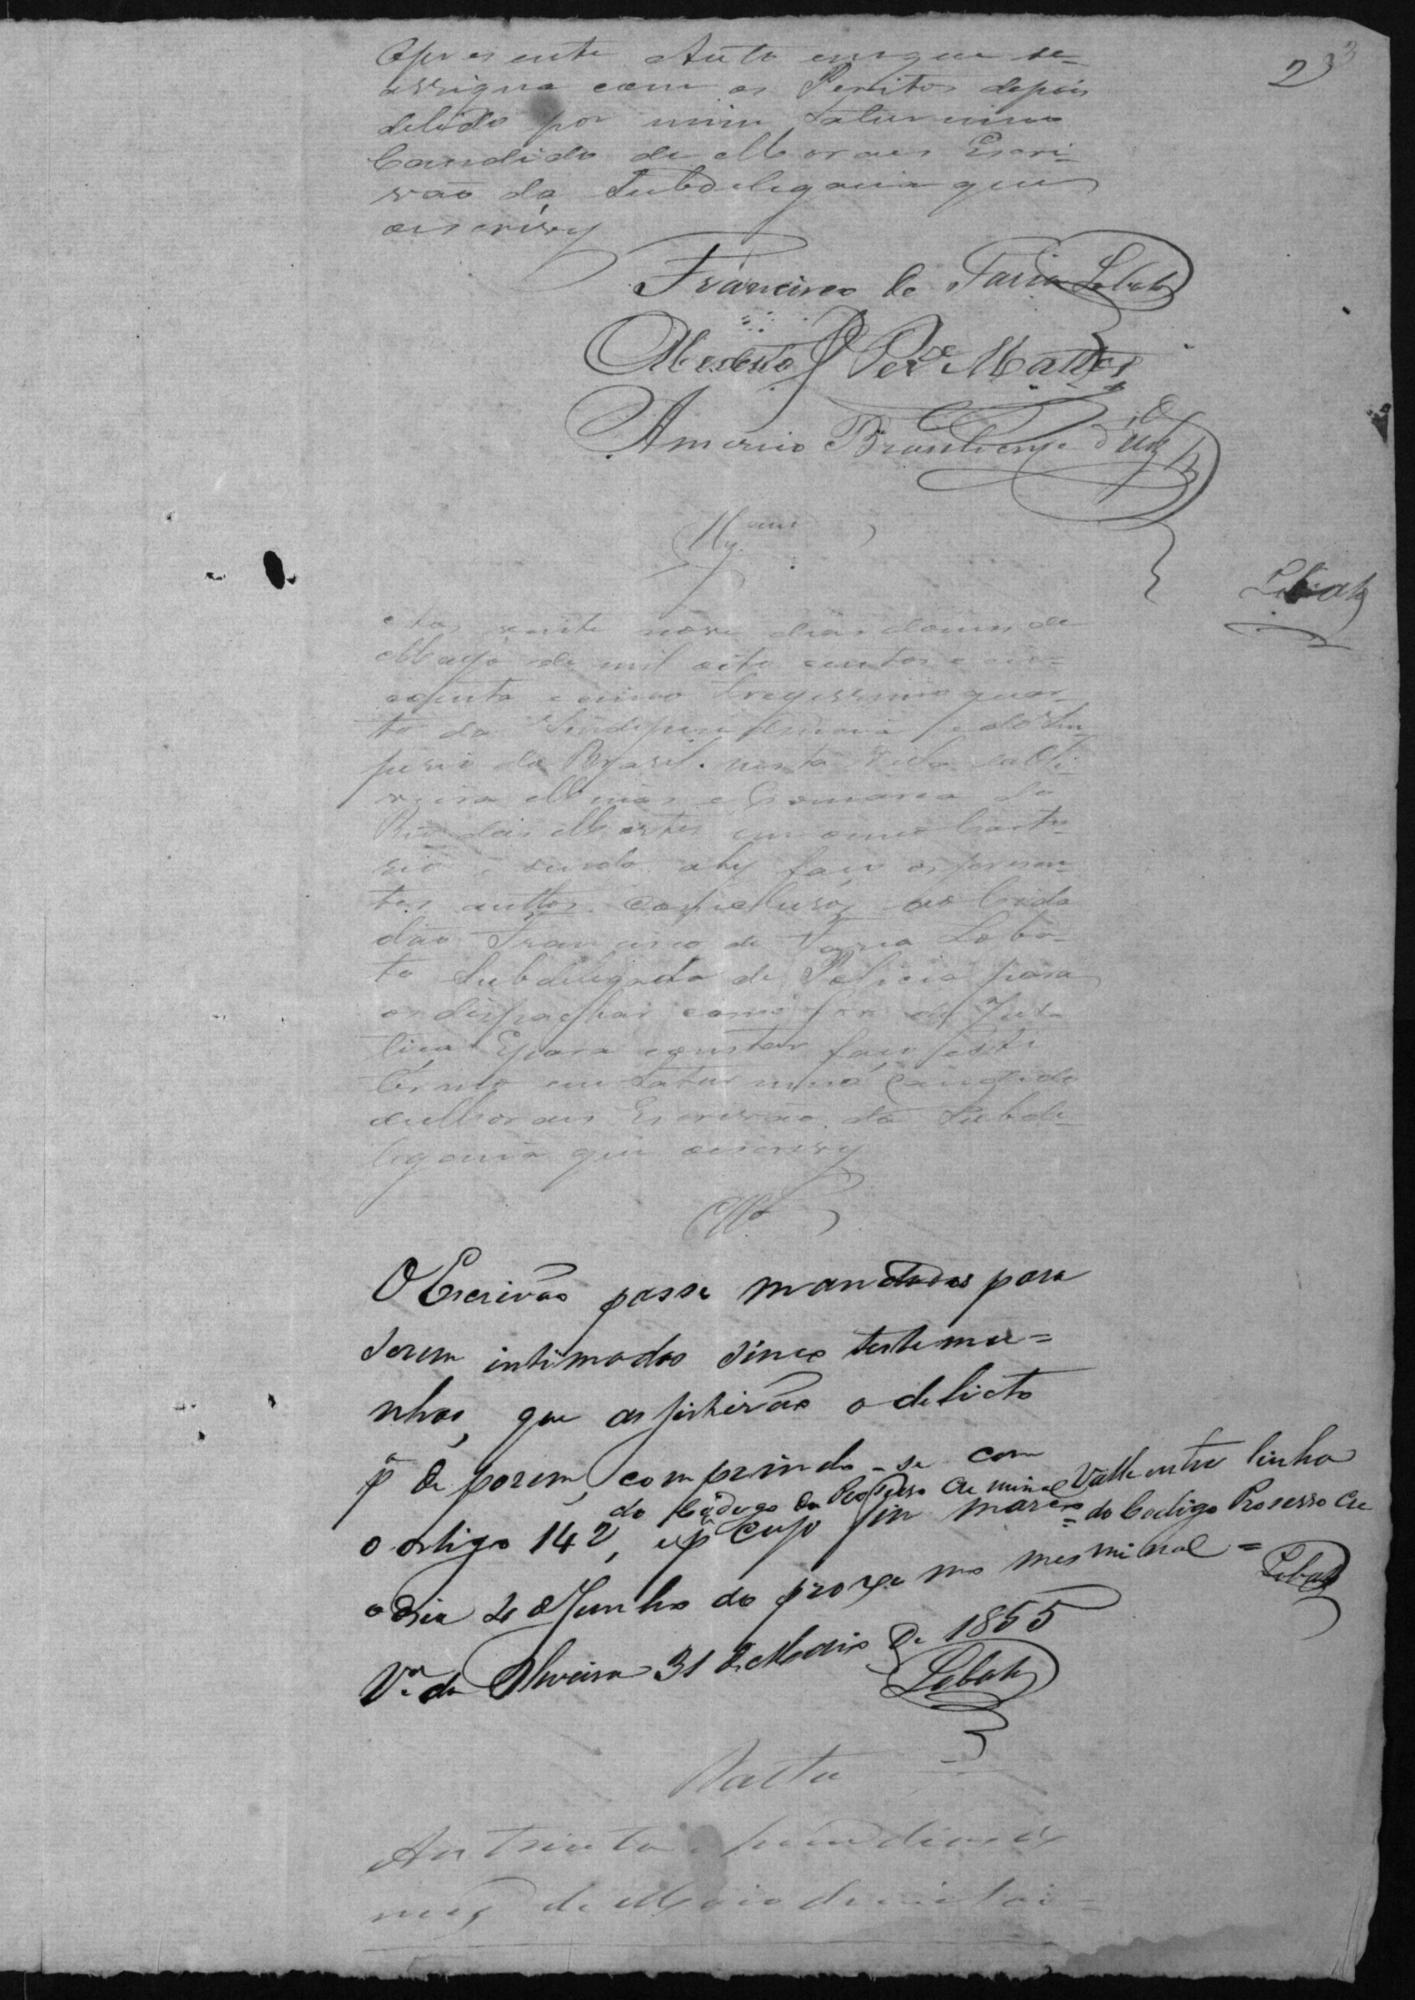 23
3
Apresente Auto em que se
assigna com os Peritos depois
de lido por mim Saturnino
Candido de Moraes Escri=
vão da Subdelegacia que
o escrivy
Francisco de Faria Lobato
Modesto Per.ª Mattos
Americo Brasiliense d'
Lobato
Aos vinte nove dias do mes de
Mayo de mil oito centos e cin=
coenta e cinco trigessimo quar
to da Independencia e do Im
perio do Brasil. nesta Villa da Oli
veira Minas e Comarca do
Rio das Mortes em o meu Carto
rio, sendo ahy faço os presen
tes auttos conclusos ao Cida
dão Francisco de Faria Loba=
to Subdelegado de Policia para
os despachar como for de Jus
tiça E para constar faço este
termo eu Saturnino Candido
de Moraes Escrivão da Subde
legacia que o escrivy
O Escrivão passe mandados para
serem intimados sinco testemu=
nhas, que asistirão o delicto
pª de porem, comprindo-se com
do Codego do Prosesso Creminal Valle entre linha
o artigo 142, e pª cujo fim marco
= do Codigo Prosesso Cre
minal =
Lobato
o dia 2 de Junho do proximo mes
Vª da Oliveira 31 de Maio de 1855
Lobato
Data
Aos trinta e hum dias do
mes de Maio de mil oi=